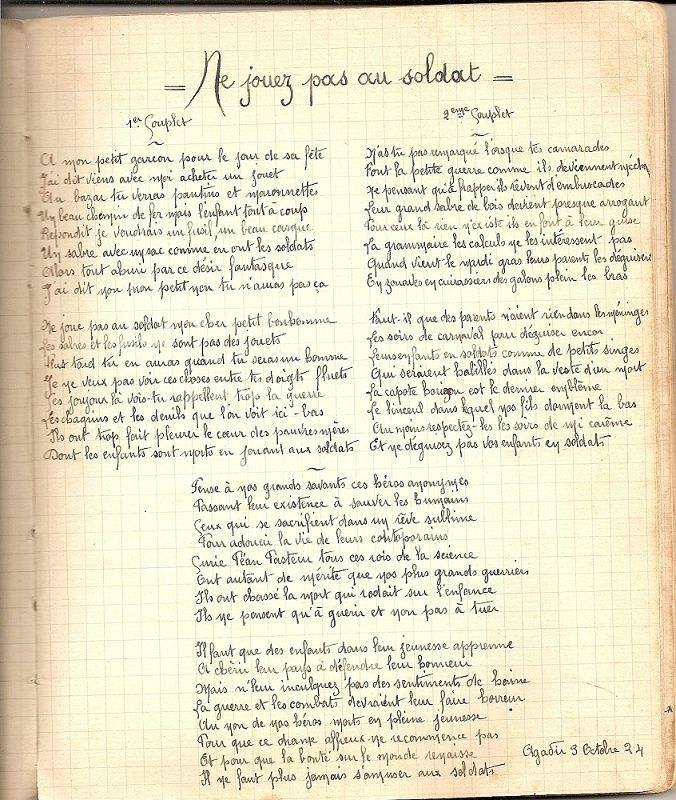 = Ne jouez pas au soldat =
1er Couplet
A mon petit garçon pour le jour de sa fête
J'ai dit viens avec moi acheter un jouet
Au bazar tu verras pantins et marionnettes
Un beau chemin de fer mais l'enfant tout à coup
Répondit je voudrais un fusil, un beau casque
Un sabre avec un sac comme en ont les soldats
Alors tout ahuri par ce désir fantasque
J'ai dit non mon petit non tu n'auras pas ça
Ne joue pas au soldat mon cher petit bonhomme
Les sabres et les fusils ne sont pas des jouets
Plus tard tu en auras quand tu seras un homme
Je ne veux pas voir ces choses entre tes doigts fluets
Ces joujoux là vois-tu rappellent trop la guerre
Les chagrins et les deuils que l'on voit ici-bas
Ils ont trop fait pleurer le cœur des pauvres mères
Dont les enfants sont morts en jouant aux soldats
2eme Couplet
N'as tu pas remarqué lorsque tes camarades
Font la petite guerre comme ils deviennent méchants
Ne pensant qu'à frapper ils rêvent d'embuscades
Leur grand sabre de bois devient presque arrogant
Pour eux là rien n'existe ils en font à leur guise
La grammaire les calculs ne les intéressent pas
Quand vient le mardi gras leurs parents les déguisent
En zouaves en cuirassiers des galons plein les bras
Faut-il que des parents n'aient rien dans les méninges
Les soirs de carnaval pour déguiser encor
Leurs enfants en soldats comme de petits singes
Qui seraient habillés dans la veste d'un mort
La capote est le dernier emblème
Le linceul dans lequel nos fils dorment la bas
Au moins respectez-les les soirs de mi carème
Et ne déguisez pas vos enfants en soldats
Pense à nos grands savants ces héros anonymes
Passant leur existence à sauver les humains
Ceux qui se sacrifient dans un rêve sublime
Pour adoucir la vie de leurs contemporains
Curie Péan Pasteur tous ces rois de la science
Ont autant de mérite que nos plus grands guerriers
Ils ont chassé la mort qui rodait sur l'enfance
Ils ne pensent qu'à guérir et non pas à tuer
Il faut que des enfants dans leur jeunesse apprenne
A chérir leur pays à défendre leur honneur
Mais n'leur inculquez pas des sentiments de haine
La guerre et les combats devraient leur faire horreur
Au nom de nos héros morts en pleine jeunesse
Pour que ce drame affreux ne recommence pas
Et pour que la bonté sur le monde renaisse
Il ne faut plus jamais s'amuser aux soldats
Agadir 3 Octobre 34